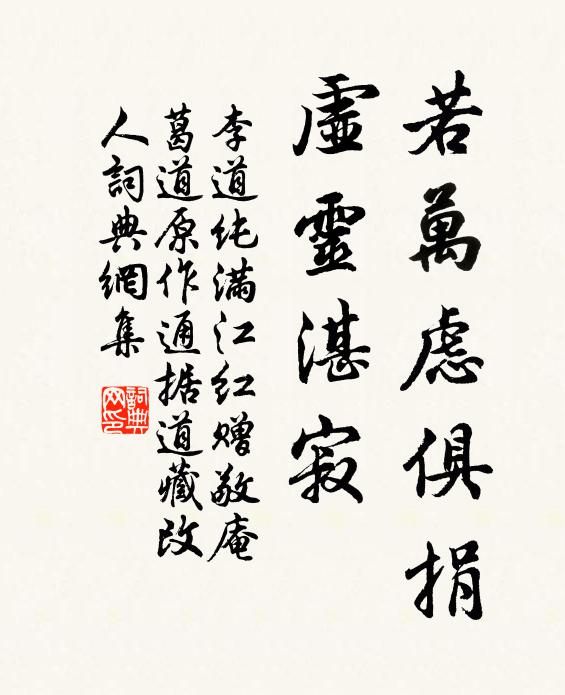 若萬慮俱捐
虛靈湛寂
李道纯满江红赠敬庵
葛道原作通据道藏改
人詞典網集
詞典网印